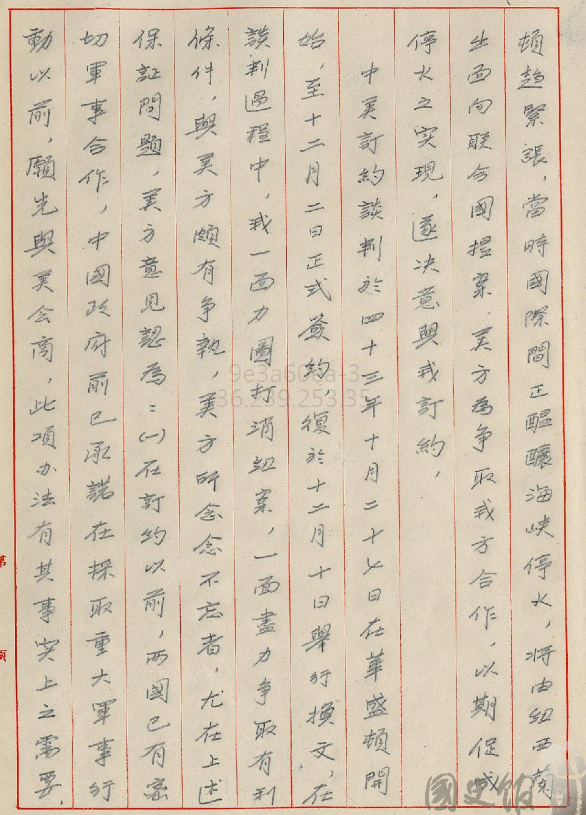 頓趨緊張，當時國際間正醞釀海峽停火，將由紐西蘭
出面向聯合國提案，美方為爭取我方合作，以期促成
停火之实現，遂決意與我訂約，
中美訂約談判於四十三年十月二十七日在華盛頓開
始，至十二月二日正式簽約復於十二月十日舉行換文，在
談判過程中，我一面力圖打消紐案，一面盡力争取有利
條件，與美方頗有争執，美方所念念不忘者，尤在上述
保証問題，美方意見認為：(一)在訂約以前，兩國已有密
切軍事合作，中國政府前已承諾在採取重大軍事行
動以前，願先與美会商，此項办法有其事实上之需要．
第
頁
國史館
9e3a60ea-3
36.239.253.35